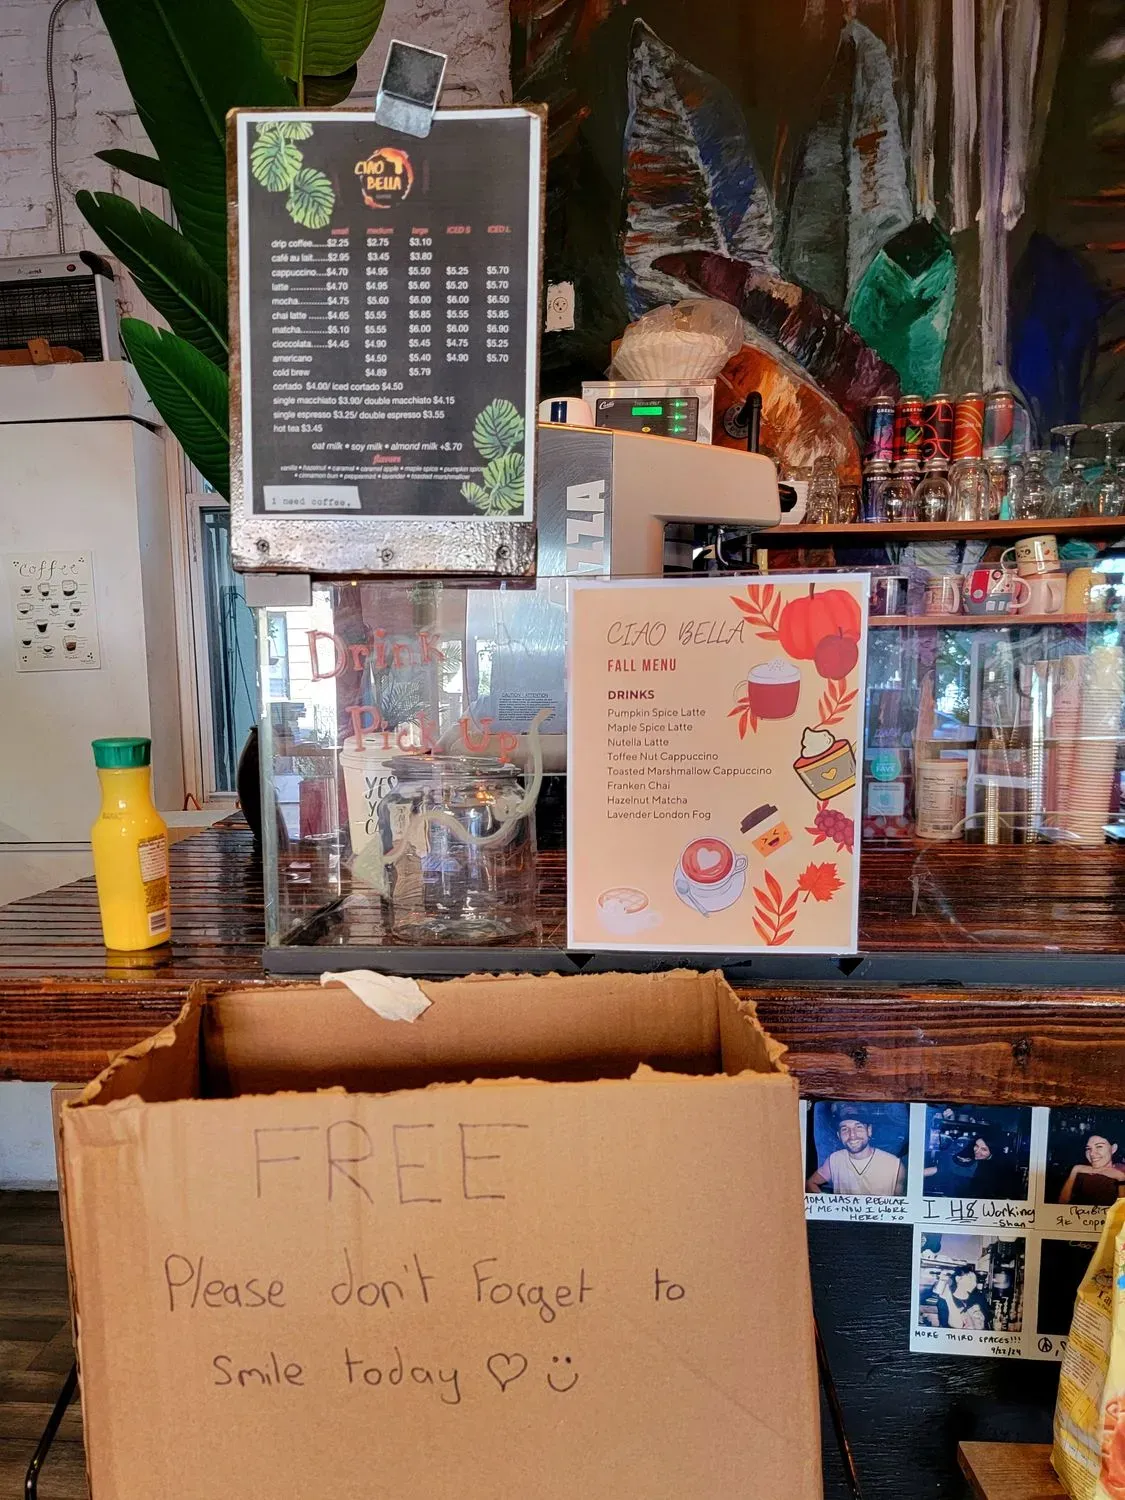 CIAO
BELLA
small medium large ICED S ICED L
drip coffee......$2.25 $2.75 $3.10
café au lait.....$2.95 $3.45 $3.80
cappuccino....$4.70 $4.95 $5.50 $5.25 $5.70
latte ..............$4.70 $4.95 $5.60 $5.20 $5.70
mocha............$4.75 $5.60 $6.00 $6.00 $6.50
chai latte .......$4.65 $5.55 $5.85 $5.55 $5.85
matcha...........$5.10 $5.55 $6.00 $6.00 $6.90
cioccolata.......$4.45 $4.90 $5.45 $4.75 $5.25
americano $4.50 $5.40 $4.90 $5.70
cold brew $4.89 $5.79
cortado $4.00/ iced cortado $4.50
single macchiato $3.90/ double macchiato $4.15
single espresso $3.25/ double espresso $3.55
hot tea $3.45
oat milk • soy milk • almond milk +$.70
flavors
vanilla • hazelnut • caramel • caramel apple • maple spice • pumpkin spice
• cinnamon bun • peppermint • lavender • toasted marshmallow
i need coffee.
coffee
Drink
Pick Up
YES
CIAO BELLA
FALL MENU
DRINKS
Pumpkin Spice Latte
Maple Spice Latte
Nutella Latte
Toffee Nut Cappuccino
Toasted Marshmallow Cappuccino
Franken Chai
Hazelnut Matcha
Lavender London Fog
FREE
Please don't Forget to
Smile today
MOM WAS A REGULAR
ME + NOW I WORK
HERE! XO
I H8 Working
-Shan
Привіт
Як спр
MORE THIRD SPACES!!!
9/22/24